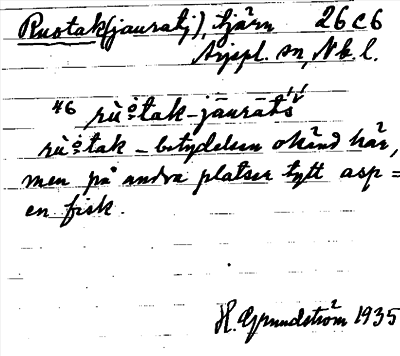 Ruotak(jauratj), tjärn 26C6
Arjepl. sn, Nb. l.
46 rùo̊tak-jāurāts´´
rùo̊tak - betydelsen okänd här,
men på andra platser tytt asp =
en fisk.
H. Grundström 1935